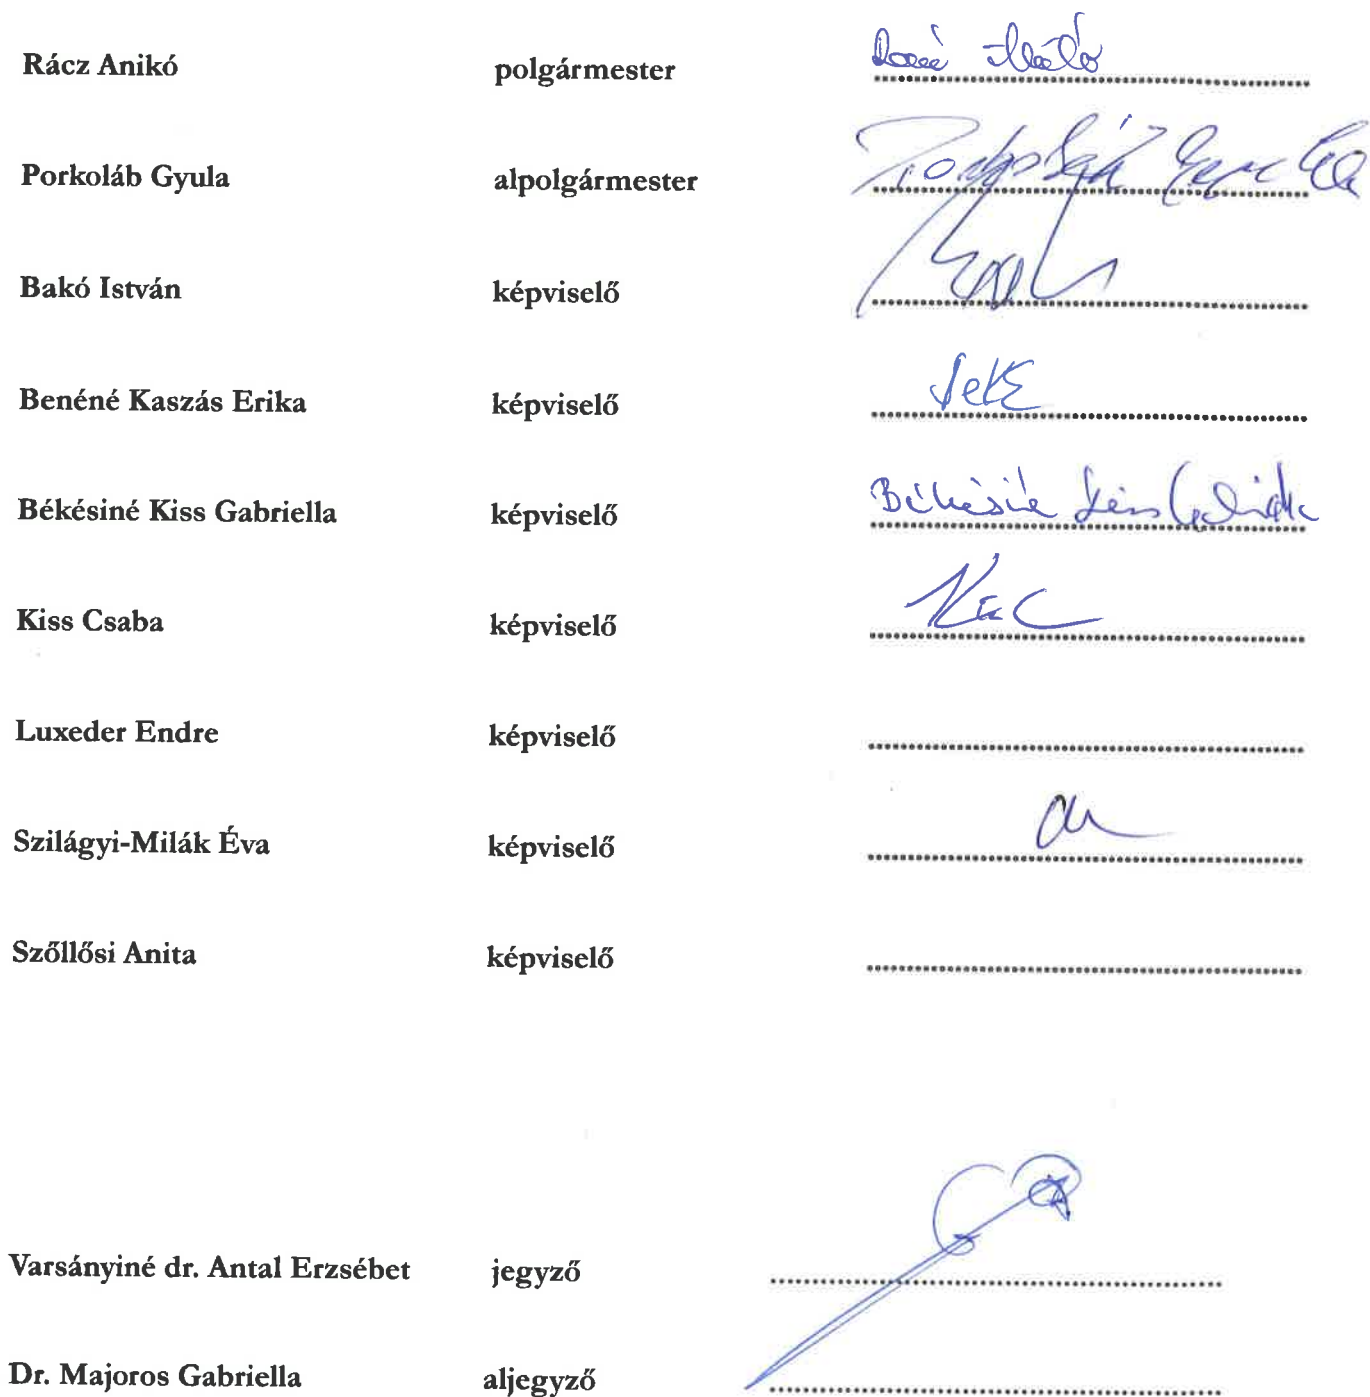 Rácz Anikó polgármester
Porkoláb Gyula alpolgármester
Bakó István képviselő
Benéné Kaszás Erika képviselő
Békésiné Kiss Gabriella képviselő Békésiné Kiss Gabriella
Kiss Csaba képviselő
Luxeder Endre képviselő
Szilágyi-Milák Éva képviselő
Szőllősi Anita képviselő
Varsányiné dr. Antal Erzsébet jegyző
Dr. Majoros Gabriella aljegyző